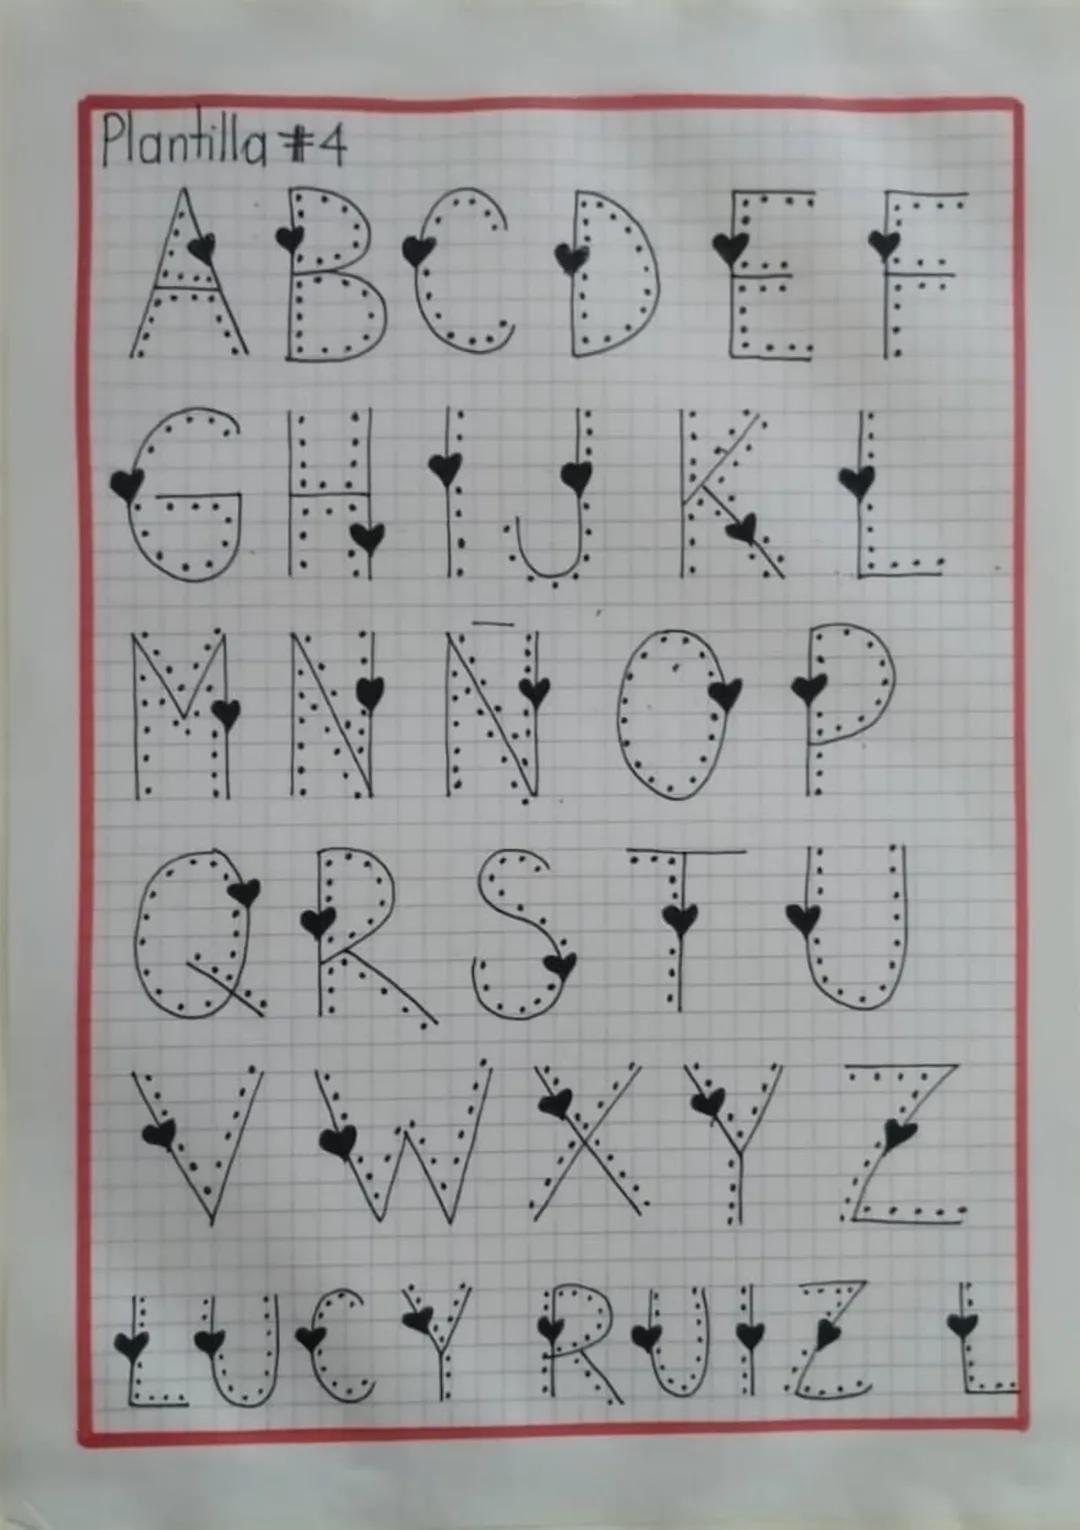 Plantilla #4
A B C D E F
G H I J K L
M N Ñ O P
Q R S T U
V W X Y Z
LUCY RUIZ L